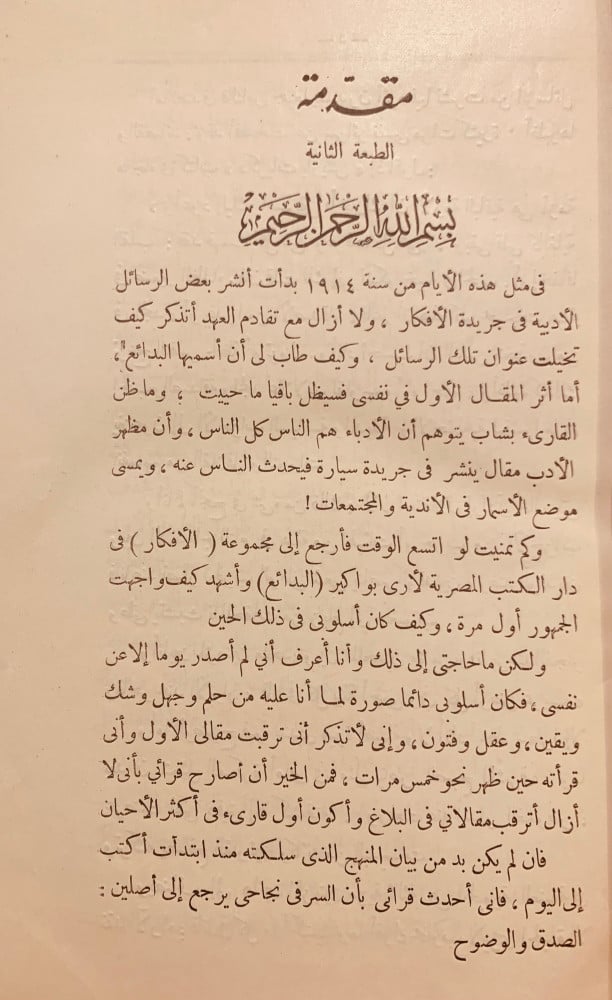 مقدمة
الطبعة الثانية
بسم الله الرحمن الرحيم
فى مثل هذه الأيام من سنة ١٩١٤ بدأت أنشر بعض الرسائل
الأدبية فى جريدة الأفكار ، ولا أزال مع تقادم العهد أتذكر كيف
تخيلت عنوان تلك الرسائل ، وكيف طاب لى أن أسميها البدائع ،
أما أثر المقال الأول في نفسى فسيظل باقيا ما حييت ؛ وما ظن
القارىء بشاب يتوهم أن الأدباء هم الناس كل الناس ، وأن مظهر
الأدب مقال ينشر فى جريدة سيارة فيحدث الناس عنه ، ويمسى
موضع الأسمار فى الأندية والمجتمعات !
وكم تمنيت لو اتسع الوقت فأرجع إلى مجموعة ( الأفكار ) فى
دار الكتب المصرية لأرى بواكير (البدائع) وأشهد كيف واجهت
الجمهور أول مرة ، وكيف كان أسلوبى فى ذلك الحين
ولكن ماحاجتى إلى ذلك وأنا أعرف أني لم أصدر يوما إلا عن
نفسى ، فكان أسلوبى دائما صورة لما أنا عليه من حلم وجهل وشك
ويقين ، وعقل وفتون ، وإنى لأتذكر أنى ترقبت مقالى الأول وأنى
قرأته حين ظهر نحو خمس مرات ، فمن الخير أن أصارح قرائي بأنى لا
أزال أترقب مقالاتي فى البلاغ وأكون أول قارىء فى أكثر الأحيان
فان لم يكن بد من بيان المنهج الذى سلكته منذ ابتدأت أكتب
إلى اليوم ، فانى أحدث قرائى بأن السر فى نجاحى يرجع إلى أصلين :
الصدق والوضوح